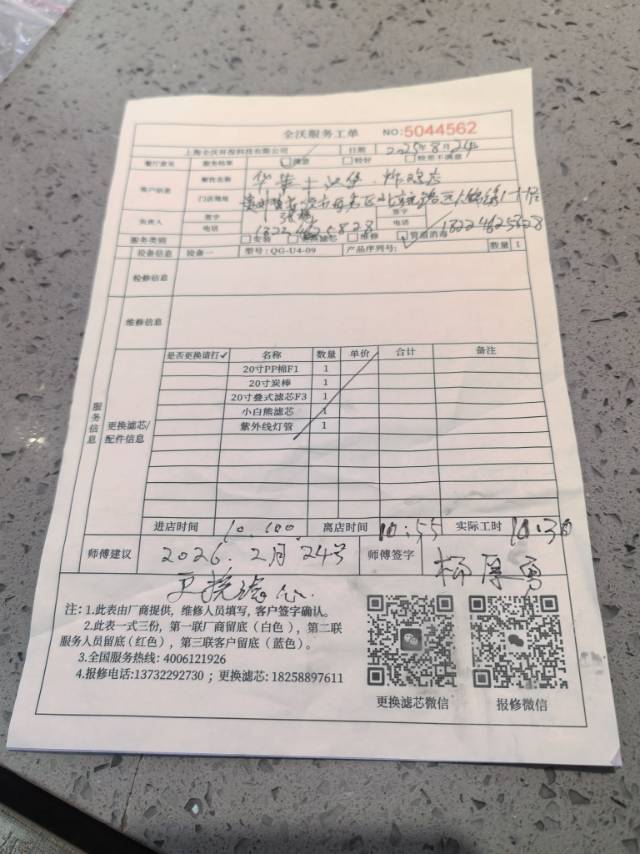 全沃服务工单 NO:5044562
上海全沃环保科技有限公司 日期 2025年8月24
餐厅意见 服务结果 满意 较好 较差不满意
客户信息 餐饮名称 华莱士
门店地址
负责人 签字 签字
电话 18224625828 电话 18224625828
服务类别 安装 更换滤芯 维修 管道消毒
设备信息 设备一 型号: QG-U4-09 产品序列号: 数量 1
检修信息
维修信息
服务信息
更换滤芯/配件信息
是否更换请打✓ 名称 数量 单价 合计 备注
20寸PP棉F1 1
20寸炭棒 1
20寸叠式滤芯F3 1
小白熊滤芯 1
紫外线灯管 1
进店时间 离店时间 10:55 实际工时
师傅建议 2026.2月24号 师傅签字 杨厚勇
更换滤芯.
注: 1.此表由厂商提供, 维修人员填写, 客户签字确认。
2.此表一式三份, 第一联厂商留底(白色), 第二联
服务人员留底(红色), 第三联客户留底(蓝色)。
3.全国服务热线: 4006121926
4.报修电话:13732292730 ; 更换滤芯: 18258897611
更换滤芯微信 报修微信